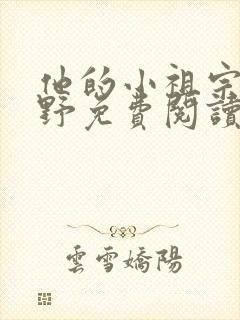 他的小祖宗
野免費閱讀
雲雪嬌陽